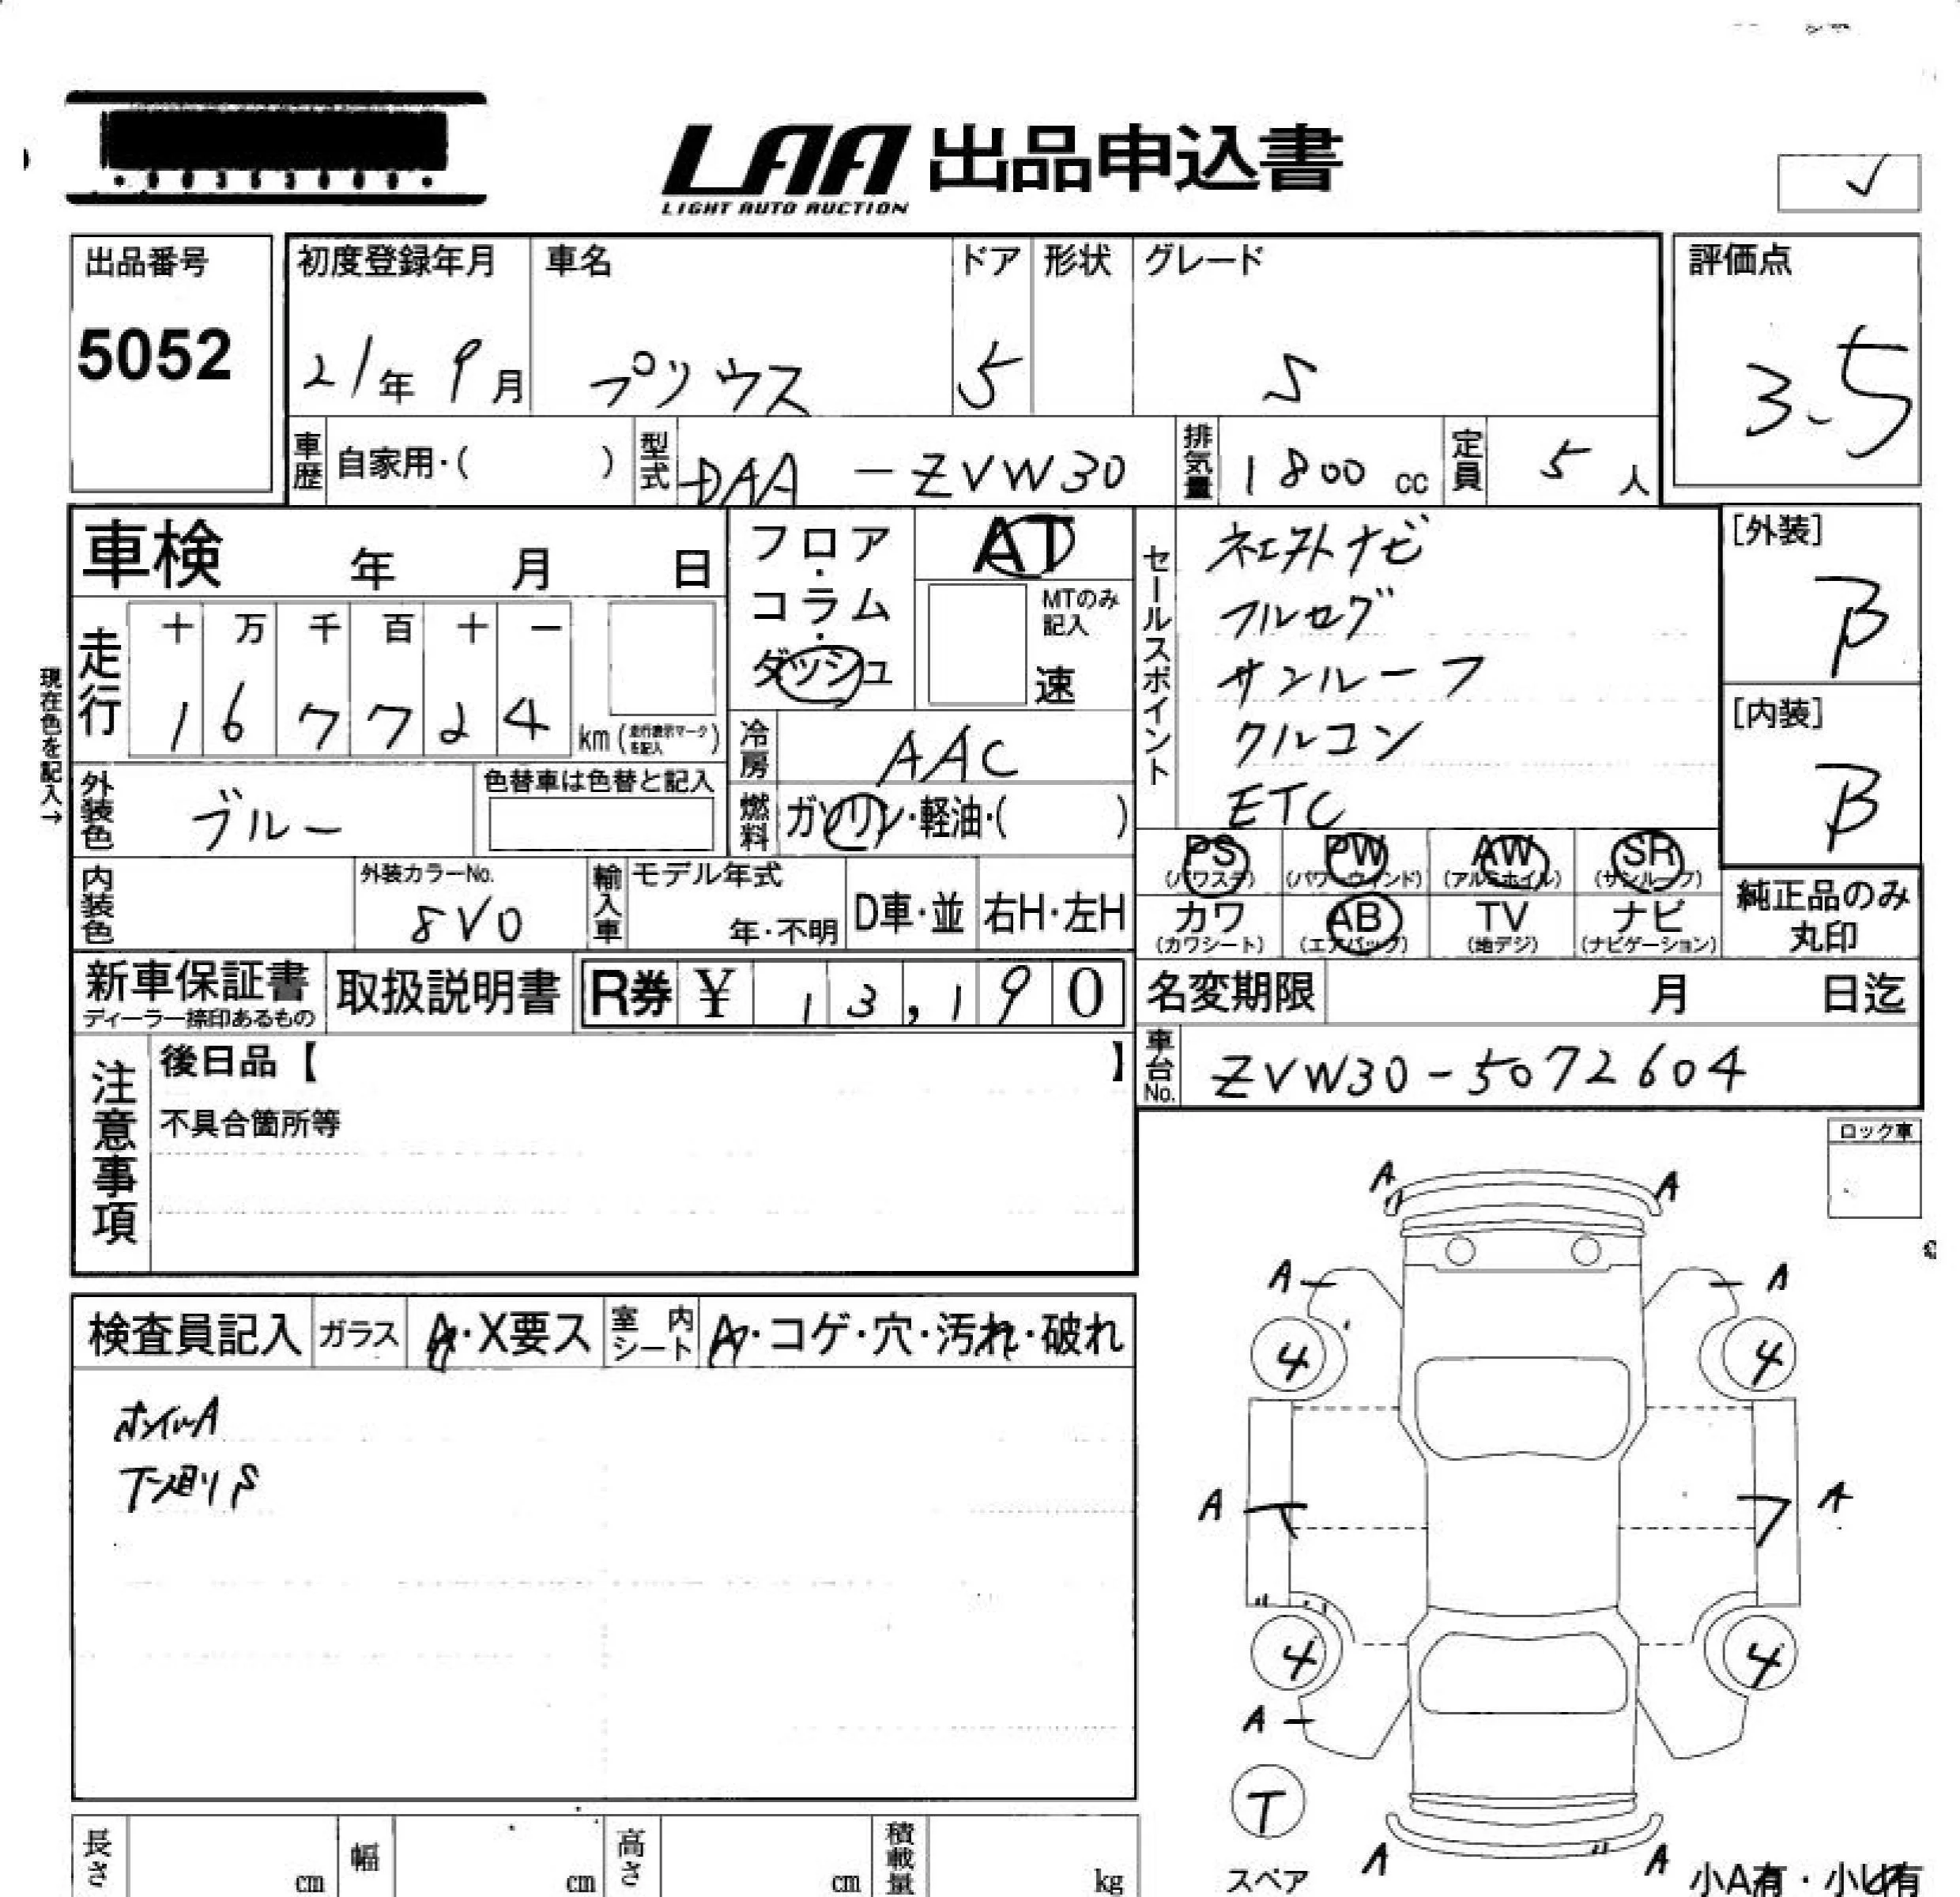 LAA 出品申込書
LIGHT AUTO AUCTION
出品番号
5052
初度登録年月
21年 9月
車名
プリウス
ドア
5
形状
グレード
S
評価点
3.5
車歴 自家用・( )
型式 DAA - ZVW30
排気量 1800 cc
定員 5 人
車検 年 月 日
走行
十 万 千 百 十 一
1 6 7 7 2 4 km (走行表示マークを記入)
現在色を記入→
外装色 ブルー
色替車は色替と記入
内装色
外装カラーNo.
8V0
輸入車
モデル年式
年・不明
D車・並
右H・左H
フロア・コラム・ダッシュ
AT
MTのみ記入
速
冷房 AAC
燃料 ガソリン・軽油・( )
セールスポイント
ネエストナビ
フルセグ
サンルーフ
クルコン
ETC
[外装]
B
[内装]
B
PS (パワステ)
PW (パワーウィンド)
AW (アルミホイル)
SR (サンルーフ)
カワ (カワシート)
AB (エアバッグ)
TV (地デジ)
ナビ (ナビゲーション)
純正品のみ丸印
新車保証書
ディーラー捺印あるもの
取扱説明書
R券 ¥ 13,190
名変期限 月 日迄
車台No. ZVW30-5072604
注意事項
後日品【 】
不具合箇所等
ロック車
検査員記入
ガラス A・X要ス
室内シート A・コゲ・穴・汚れ・破れ
ホイルA
下廻りS
A A
A A
4 4
A A
4 4
A
T
スペア
A A
小A有・小U有
長さ cm
幅 cm
高さ cm
積載量 kg